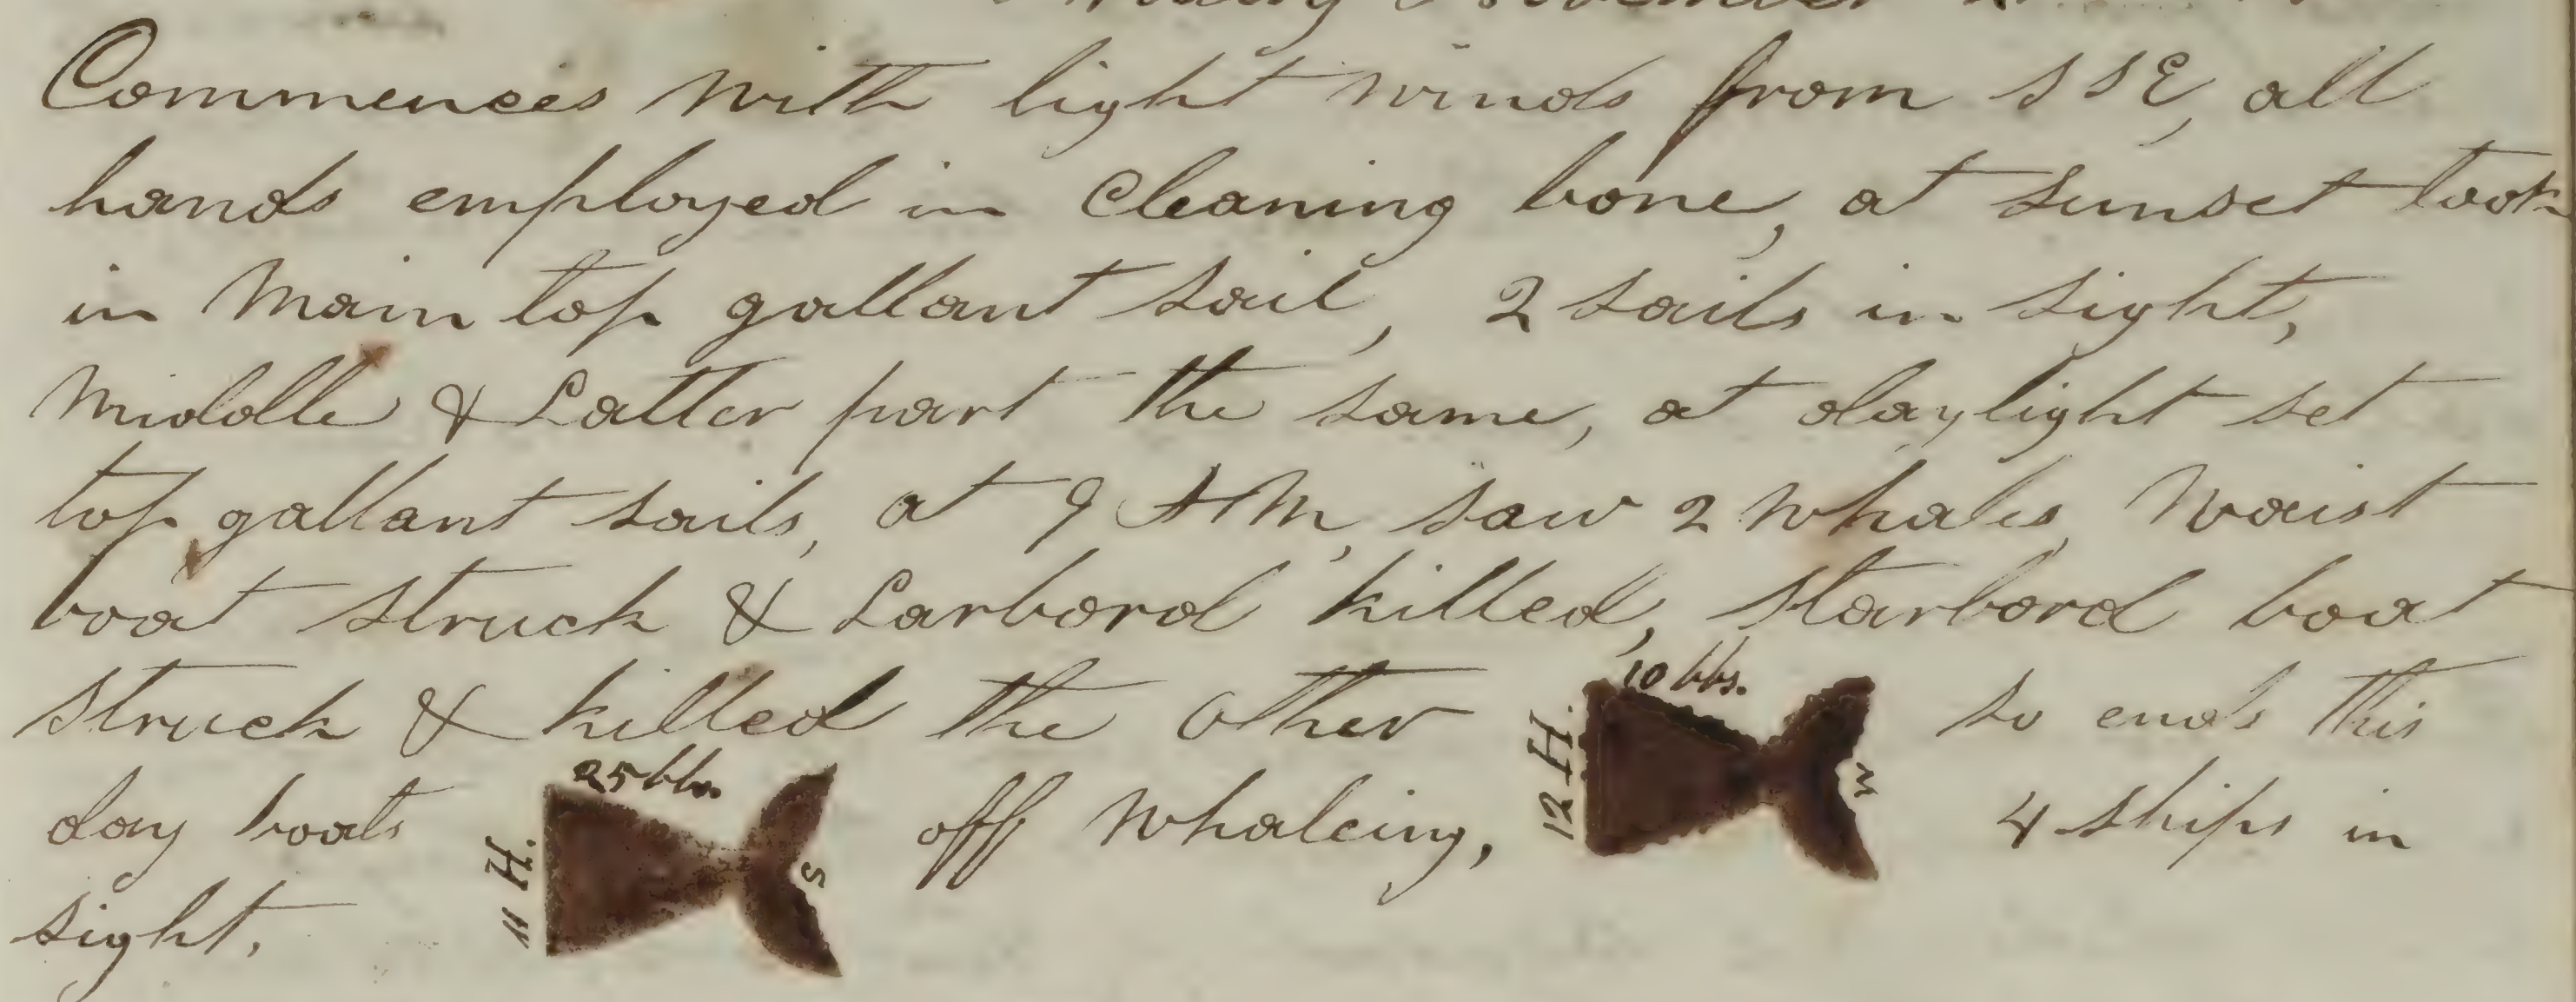 November
Commences with light winds from SSE, all
hands employed in Cleaning bone, at sunset took
in Main top gallant sail, 2 sails in sight,
Middle & Latter part the same, at daylight set
top gallant sails, at 9 AM, saw 2 whales, Waist
boat struck & Larbord killed, Starbord boat
struck & killed the other so ends this
10 bbs.
12 H.
W
day boats off Whaleing, 4 ships in
25 bbs.
11 H.
S
sight,